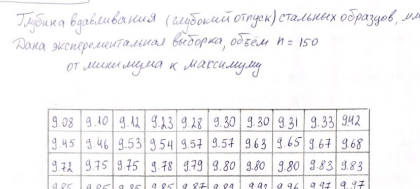 Глубина вдавливания (глубокий отпуск) стальных образцов, мм
Дана эксперементальная выборка, объём n = 150
от минимума к максимуму
9.08 9.10 9.12 9.23 9.28 9.30 9.30 9.31 9.33 9.42
9.45 9.46 9.53 9.54 9.57 9.57 9.63 9.65 9.67 9.68
9.72 9.75 9.75 9.78 9.79 9.80 9.80 9.80 9.83 9.83
9.85 9.85 9.85 9.85 9.87 9.97 9.97